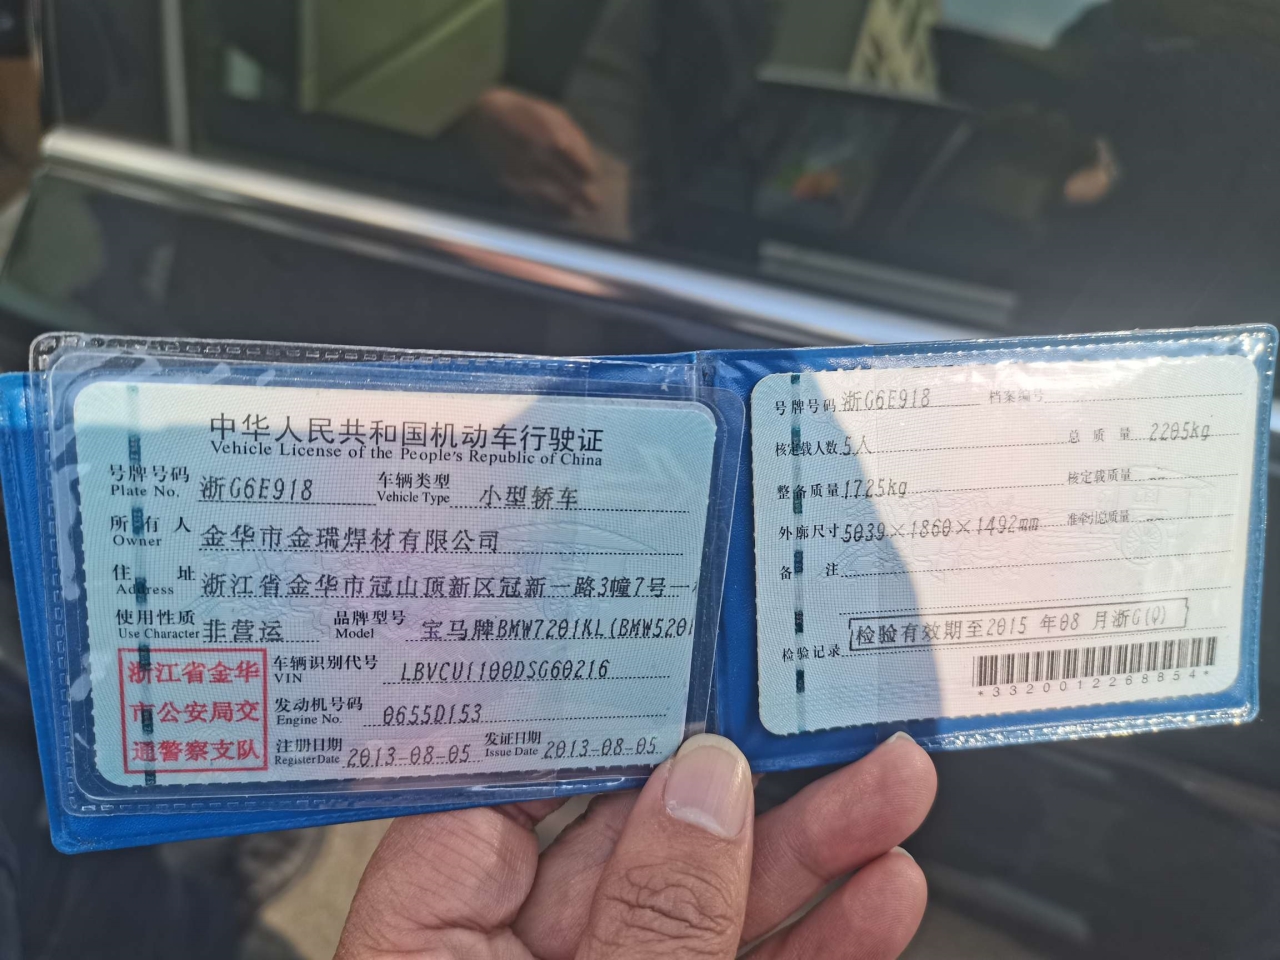 中华人民共和国机动车行驶证
Vehicle License of the People's Republic of China
号牌号码 浙G6E918 车辆类型 小型轿车
Plate No. Vehicle Type
所有人 金华市金瑞焊材有限公司
Owner
住址 浙江省金华市冠山顶新区冠新一路3幢7号一
Address
使用性质 非营运 品牌型号 宝马牌BMW7201KL(BMW520
Use Character Model
浙江省金华
市公安局交
通警察支队
车辆识别代号 LBVCU1100DSG60216
VIN
发动机号码 0655D153
Engine No.
注册日期 2013-08-05 发证日期 2013-08-05
Register Date Issue Date
号牌号码 浙G6E918 档案编号
核定载人数 5人 总质量 2205kg
整备质量 1725kg 核定载质量 --
外廓尺寸 5039×1860×1492mm 准牵引总质量 --
备注
检验记录 检验有效期至2015 年08 月浙G(Q)
*3320012268854*